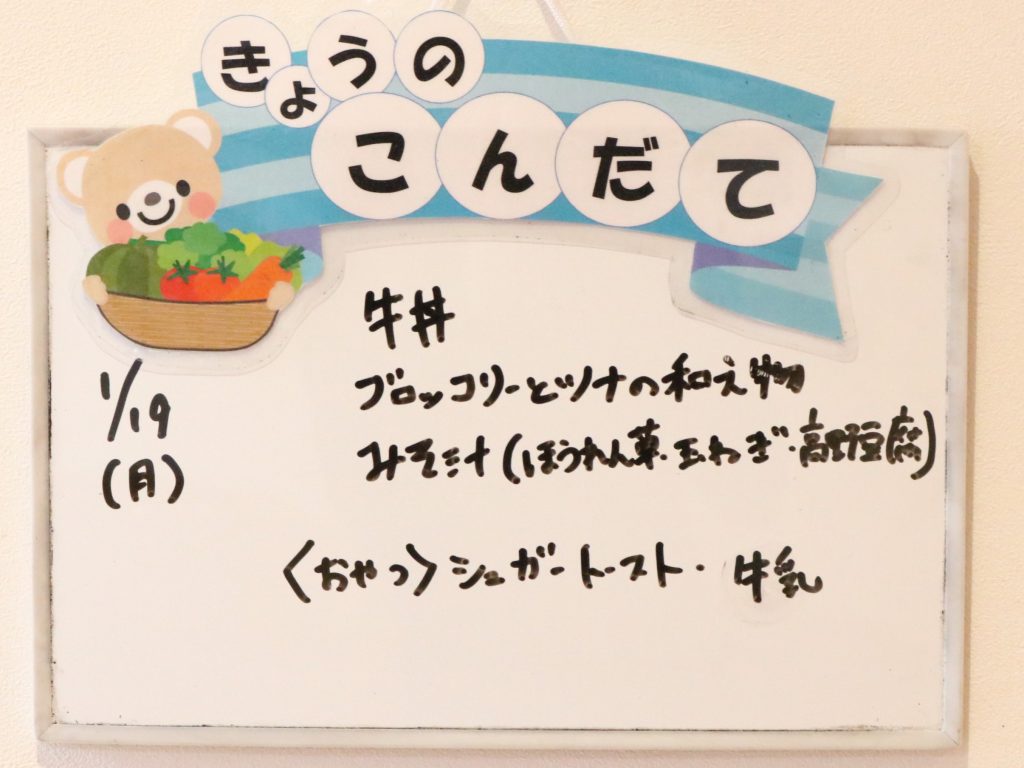 きょうの
こんだて
牛丼
1/19
(月)
ブロッコリーとツナの和え物
みそ汁(ほうれん草・玉ねぎ・高野豆腐)
〈おやつ〉シュガートースト・牛乳